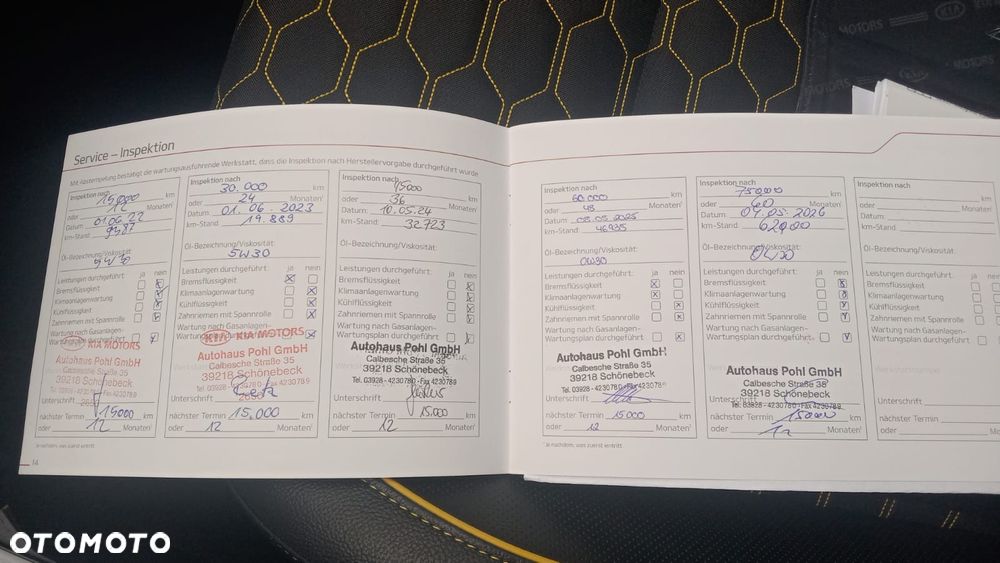 MOTORS
KIA
KIA MOTORS
MOTORS
KIA
Service – Inspektion
Mit Abstempelung bestätigt die wartungsausführende Werkstatt, dass die Inspektion nach Herstellervorgabe durchgeführt wurde
Inspektion nach
15000 km
oder 12 Monaten¹
Datum 01.06.22
km-Stand 9387
Öl-Bezeichnung/Viskosität:
5W30
Leistungen durchgeführt: ja nein
Bremsflüssigkeit
Klimaanlagenwartung
Kühlflüssigkeit
Zahnriemen mit Spannrolle
Wartung nach Gasanlagen-
Wartungsplan durchgeführt
KIA MOTORS
Autohaus Pohl GmbH
Calbesche Straße 35
39218 Schönebeck
Tel. 03928 - 4230780 - Fax 4230789
Unterschrift
nächster Termin 15000 km
oder 12 Monaten¹
Inspektion nach
30.000 km
oder 24 Monaten¹
Datum 01.06.2023
km-Stand 19.889
Öl-Bezeichnung/Viskosität:
5W30
Leistungen durchgeführt: ja nein
Bremsflüssigkeit
Klimaanlagenwartung
Kühlflüssigkeit
Zahnriemen mit Spannrolle
Wartung nach Gasanlagen-
KIA KIA MOTORS
Autohaus Pohl GmbH
Calbesche Straße 35
39218 Schönebeck
Tel. 03928 - 4230780 - Fax 4230789
Unterschrift
nächster Termin 15.000 km
oder 12 Monaten¹
Inspektion nach
45000 km
oder 36 Monaten¹
Datum: 10.05.24
km-Stand: 32723
Öl-Bezeichnung/Viskosität:
Leistungen durchgeführt: ja nein
Bremsflüssigkeit
Klimaanlagenwartung
Kühlflüssigkeit
Zahnriemen mit Spannrolle
Wartung nach Gasanlagen-
Wartungsplan durchgeführt
Autohaus Pohl GmbH
Calbesche Straße 35
39218 Schönebeck
Tel. 03928 - 4230780 - Fax 4230789
Unterschrift
nächster Termin 15.000 km
oder 12 Monaten¹
¹ Je nachdem, was zuerst eintritt
14
Inspektion nach
60.000 km
oder 48 Monaten¹
Datum
km-Stand 46935
Öl-Bezeichnung/Viskosität:
0W30
Leistungen durchgeführt: ja nein
Bremsflüssigkeit
Klimaanlagenwartung
Kühlflüssigkeit
Zahnriemen mit Spannrolle
Wartung nach Gasanlagen-
Wartungsplan durchgeführt
Autohaus Pohl GmbH
Calbesche Straße 35
39218 Schönebeck
Tel. 03928 - 4230780 - Fax 4230789
Unterschrift
nächster Termin 15000 km
oder 12 Monaten¹
¹ Je nachdem, was zuerst eintritt
Inspektion nach
75000 km
oder 60 Monaten¹
Datum
km-Stand
Öl-Bezeichnung/Viskosität:
0W30
Leistungen durchgeführt: ja nein
Bremsflüssigkeit
Klimaanlagenwartung
Kühlflüssigkeit
Zahnriemen mit Spannrolle
Wartung nach Gasanlagen-
Wartungsplan durchgeführt:
Autohaus Pohl GmbH
Calbesche Straße 35
39218 Schönebeck
Tel. 03928 - 4230780 - Fax 4230789
Unterschrift
nächster Termin km
oder 12 Monaten¹
Inspektion nach
oder
Datum
km-Stand
Öl-Bezeichnung/Viskosität:
Leistungen durchgeführt:
Bremsflüssigkeit
Klimaanlagenwartung
Kühlflüssigkeit
Zahnriemen mit Spannrolle
Wartung nach Gasanlagen-
Wartungsplan durchgeführt
Unterschrift
nächster Termin
oder
OTOMOTO